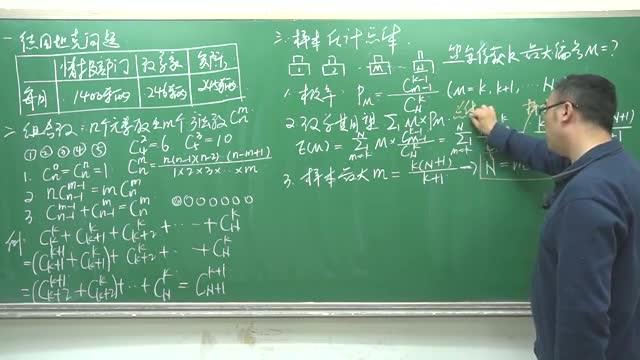 一 德国坦克问题
情报部门 数学家 实际
每月 1400辆 246辆 245辆
二 组合数:n个元素取出m个 引出数 C_n^m
① C_n^0 = C_n^n = 1. C_4^2 = 6 C_5^3 = 10
C_n^m = n(n-1)(n-2)…(n-m+1) / 1×2×3×…×m
2 nC_{n-1}^{m-1} = mC_n^m
3 C_{n-1}^{m-1} + C_{n-1}^m = C_n^m
例: C_k^k + C_{k+1}^k + C_{k+2}^k + … + C_N^k
=(C_{k+1}^{k+1} + C_{k+1}^k) + C_{k+2}^k … + C_N^k
=(C_{k+2}^{k+1} + C_{k+2}^k) + … + C_N^k = C_{N+1}^{k+1}
三. 样本估计总体.
1 2 M N
最大编号M=?
1. 概率: P_M = C_{M-1}^{k-1} / C_N^k (M=k, k+1, … N
2 数学期望 Σ M×P_M.
E(M) = Σ_{m=k}^N M × C_{M-1}^{k-1} / C_N^k = Σ_{m=k}^N
3. 样本最大 m = k(N+1) / k+1 → N =